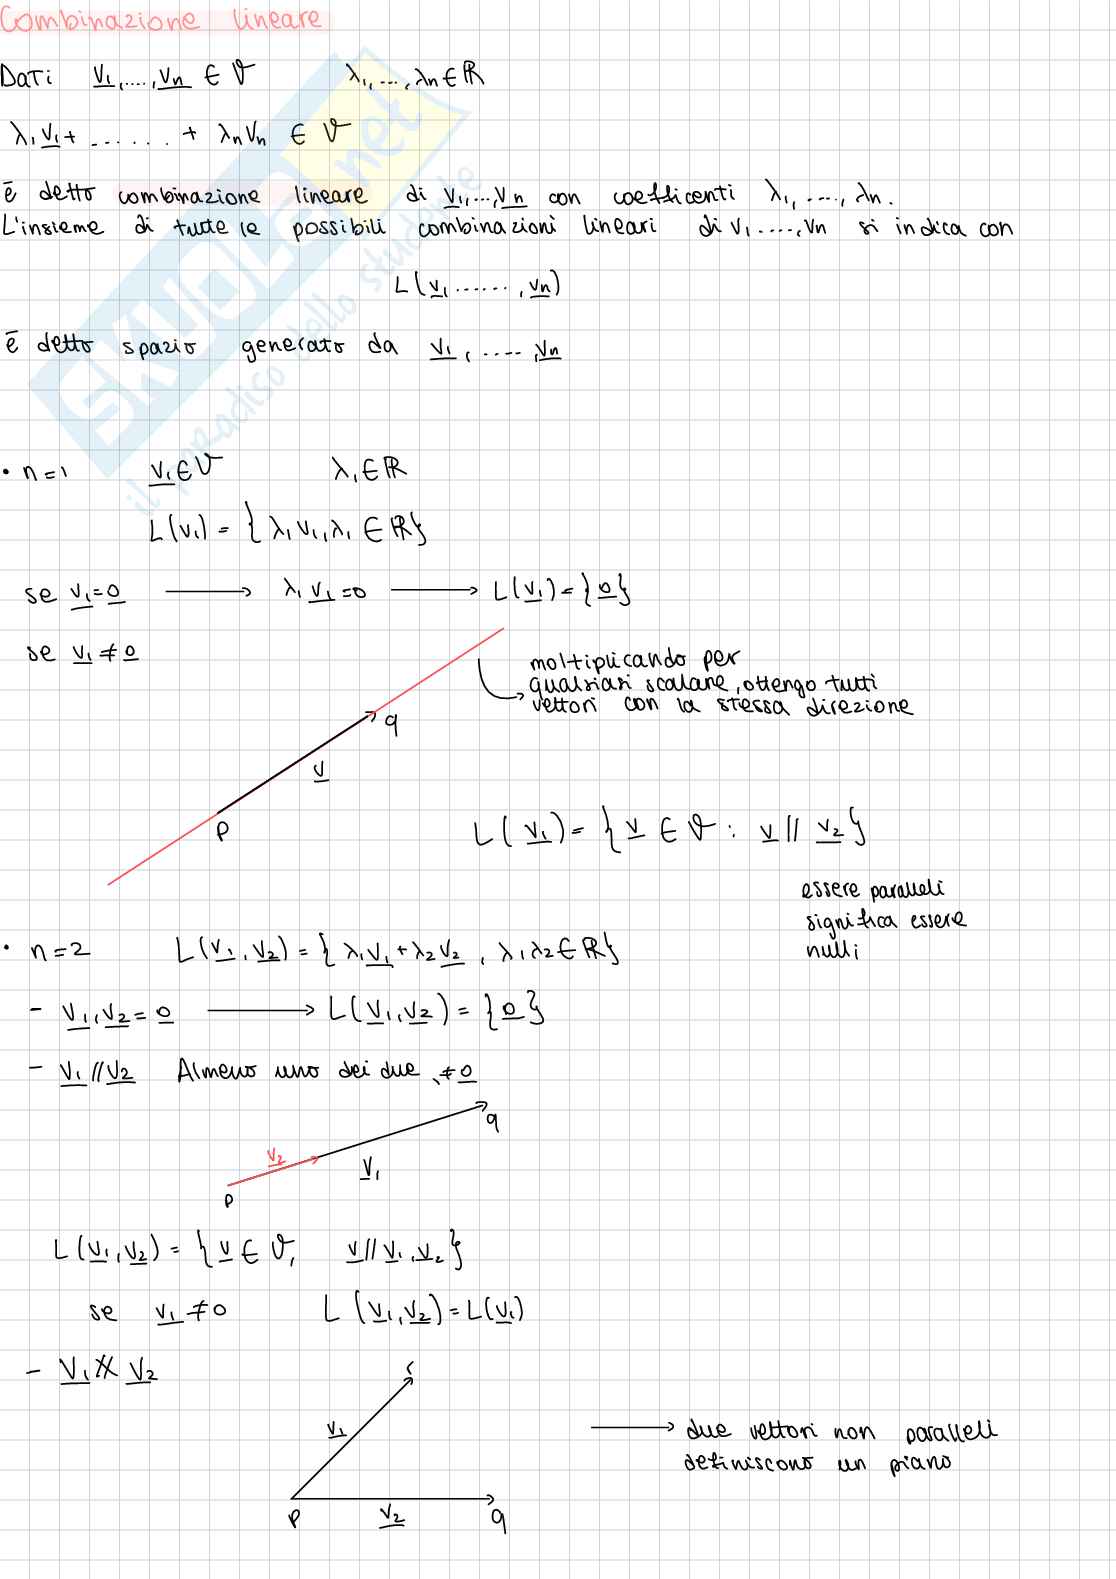 Combinazione lineare
Dati v1,....,vn ∈ V λ1,...,λn ∈ ℝ
λ1 v1 + ....... + λn vn ∈ V
è detto combinazione lineare di v1,...,vn con coefficenti λ1,....,λn.
L'insieme di tutte le possibili combinazioni lineari di v1.....,vn si indica con
L(v1......,vn)
è detto spazio generato da v1,....,vn
• n=1 v1 ∈ V λ1 ∈ ℝ
L(v1) = {λ1 v1, λ1 ∈ ℝ}
se v1=0 ⟶ λ1 v1=0 ⟶ L(v1)={0}
se v1≠0
moltiplicando per
qualsiasi scalare, ottengo tutti
vettori con la stessa direzione
q
v
p
L(v1)= {v ∈ V : v // v2}
essere paralleli
significa essere
nulli
• n=2 L(v1,v2)={λ1v1+λ2v2, λ1λ2∈ℝ}
- v1,v2=0 ⟶ L(v1,v2)={0}
- v1//v2 Almeno uno dei due ≠0
q
v2
v1
p
L(v1,v2)={v ∈ V, v//v1,v2}
se v1≠0 L(v1,v2)=L(v1)
- v1 ∦ v2
r
v1
⟶ due vettori non paralleli
definiscono un piano
p v2 q
SKUOLA.net
il paradiso dello studente